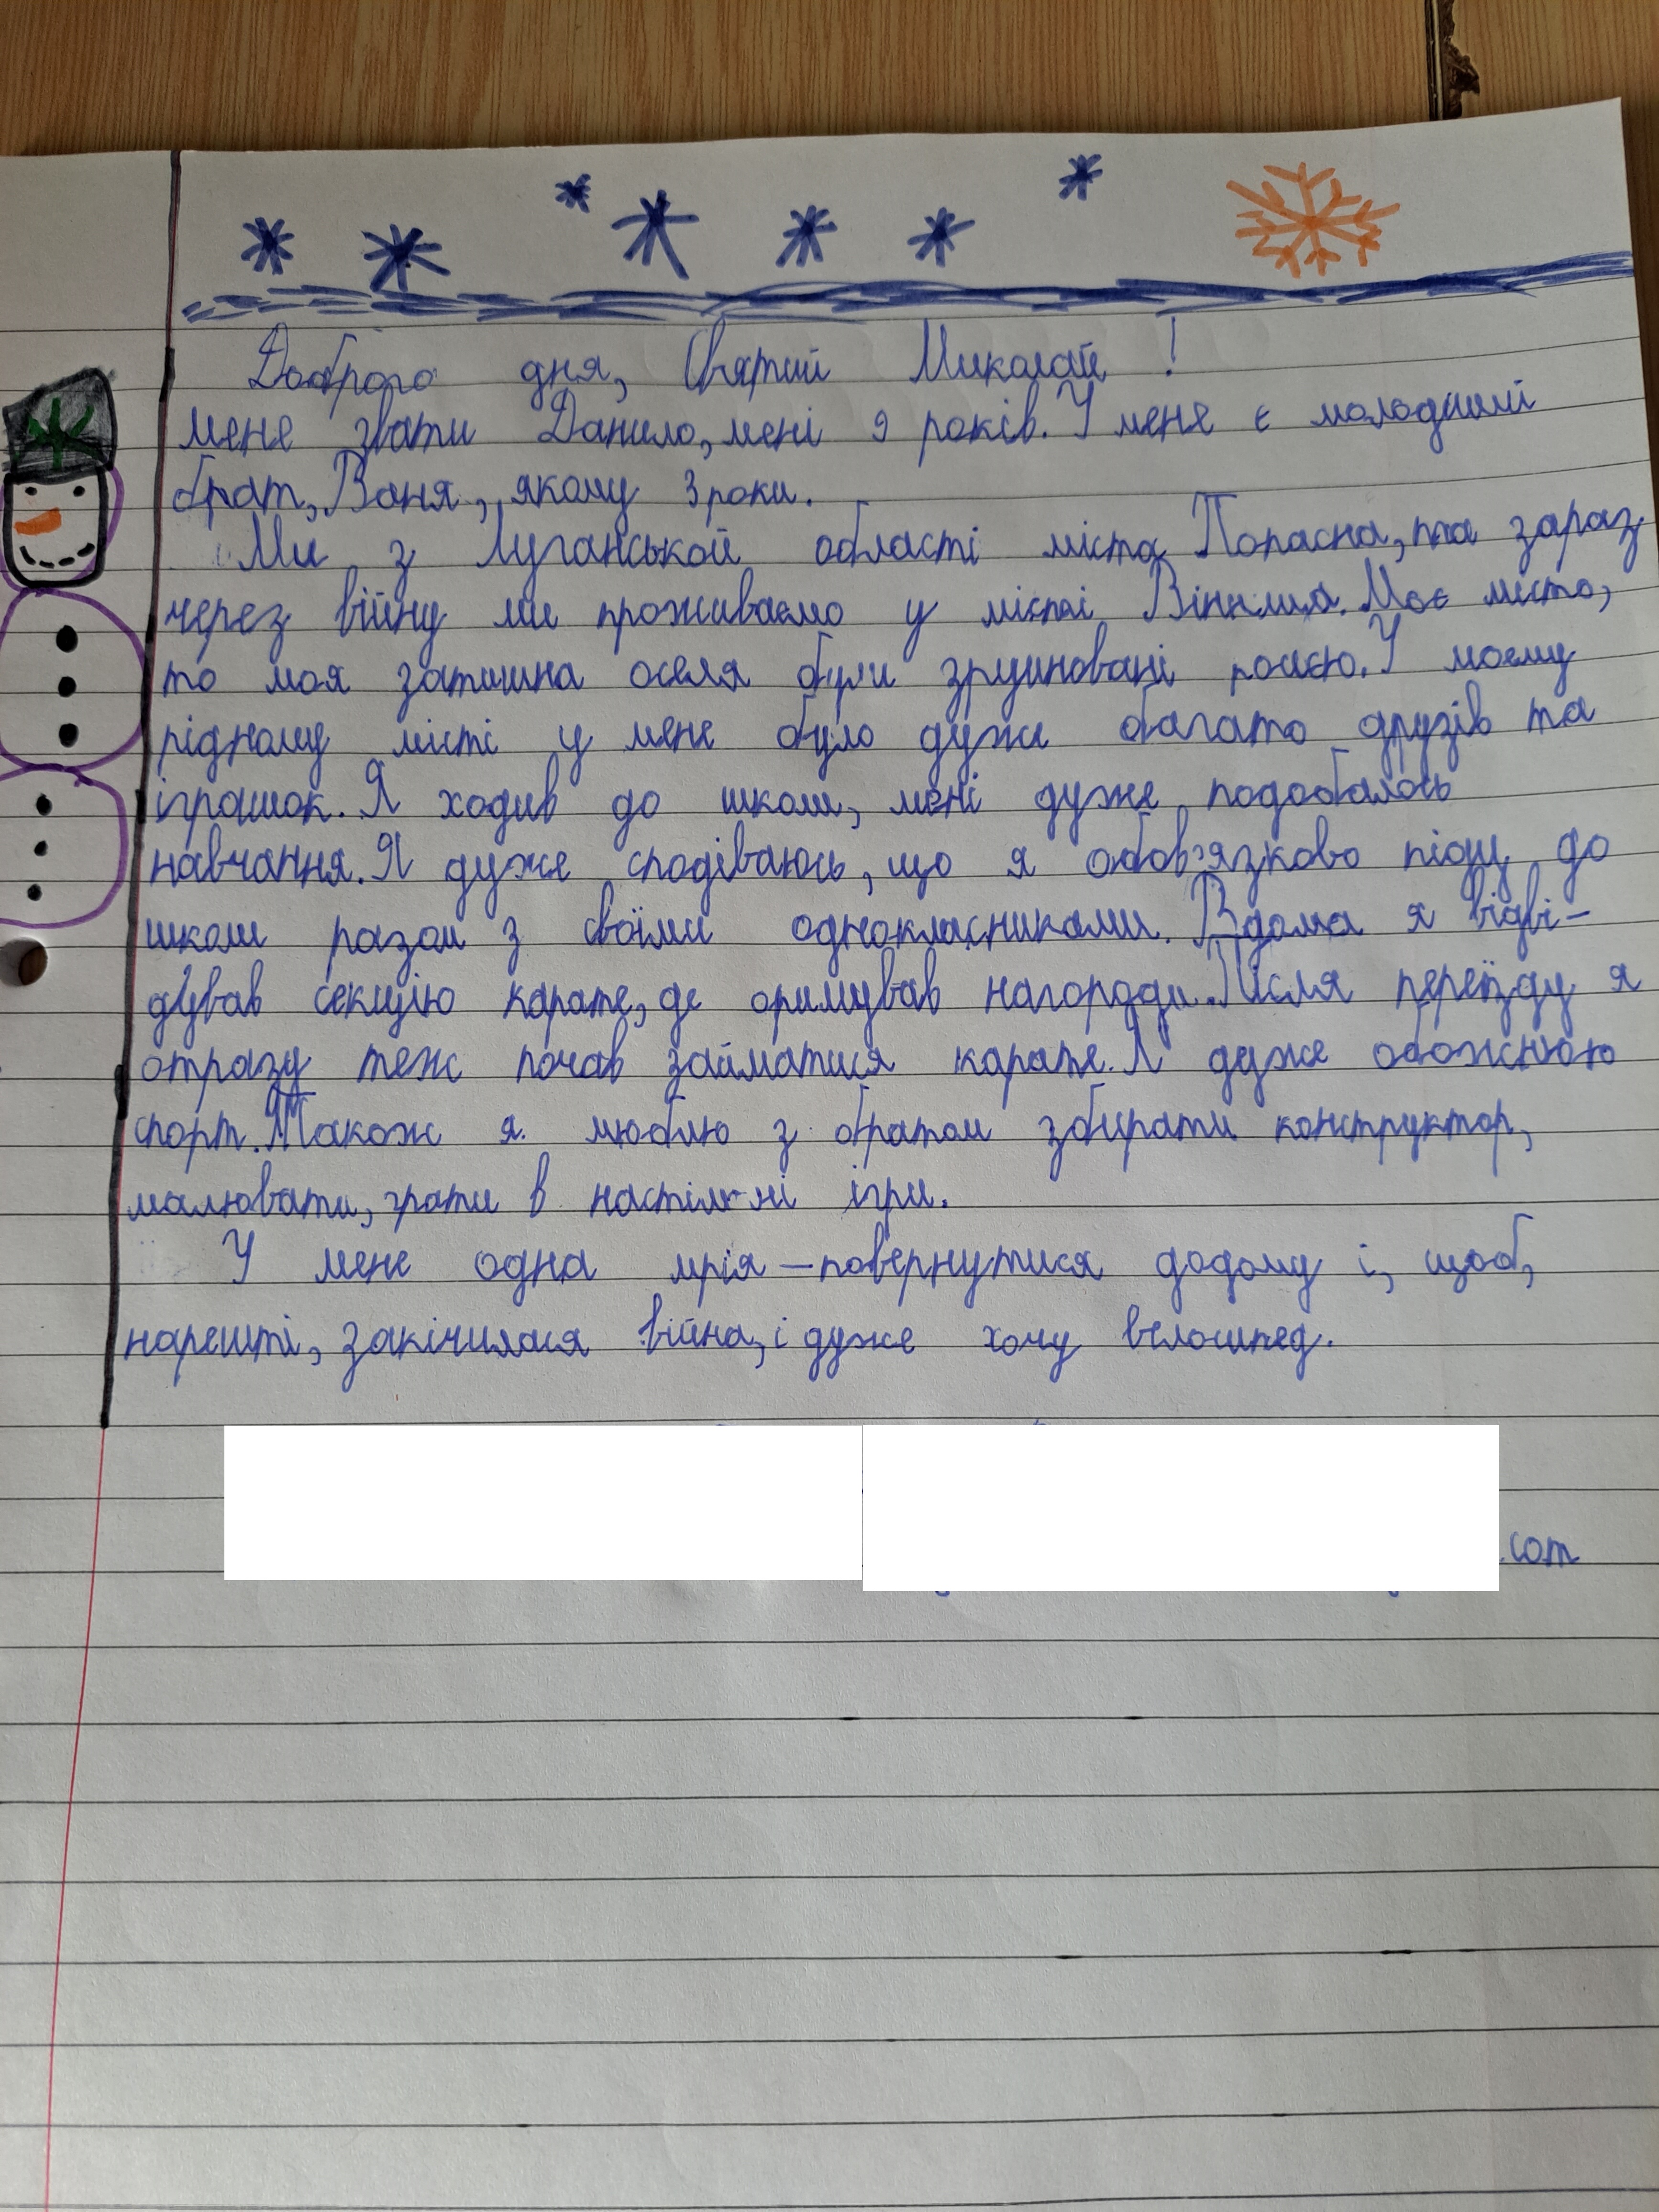 Доброго дня, Святий Миколай!
мене звати Данило, мені 9 років. У мене є молодший
брат, Ваня, якому 3 роки.
Ми з Луганської області міста Попасна, та зараз
через війну ми проживаємо у місті Вінниця. Моє місто,
то моя затишна оселя були зруйновані росією. У моєму
рідному місті у мене було дуже багато друзів та
іграшок. Я ходив до школи, мені дуже подобалось
навчання. Я дуже сподіваюсь, що я обов'язково піду до
школи разом з своїми однокласниками. Вдома я відві-
дував секцію карате, де оримував нагороди. Після переїзду я
отразу теж почав займатися карате. Я дуже обожнюю
спорт. Також я люблю з братом збирати конструктор,
малювати, грати в настільні ігри.
У мене одна мрія – повернутися додому і, щоб,
нарешті, закічилася війна, і дуже хочу велосипед.
.com